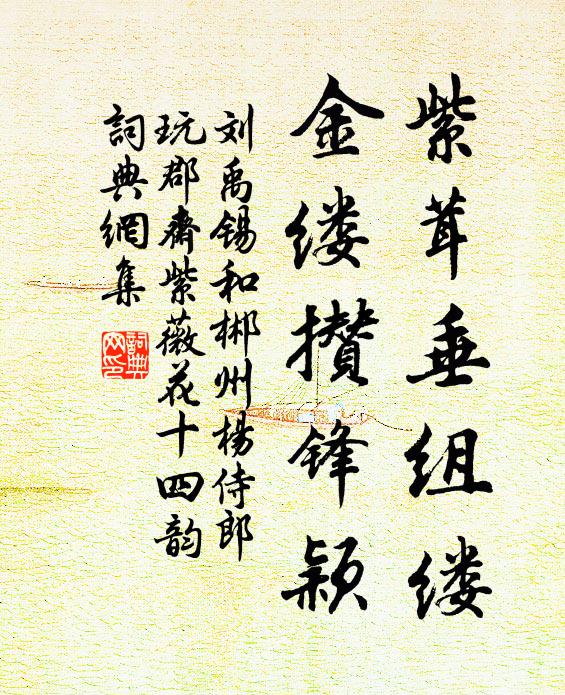 紫茸垂组缕
金缕攒锋颖
刘禹锡和郴州杨侍郎
玩郡斋紫薇花十四韵
詞典網集
詞典
网印